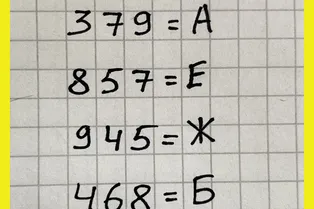 379=А
857=Е
945=Ж
468=Б